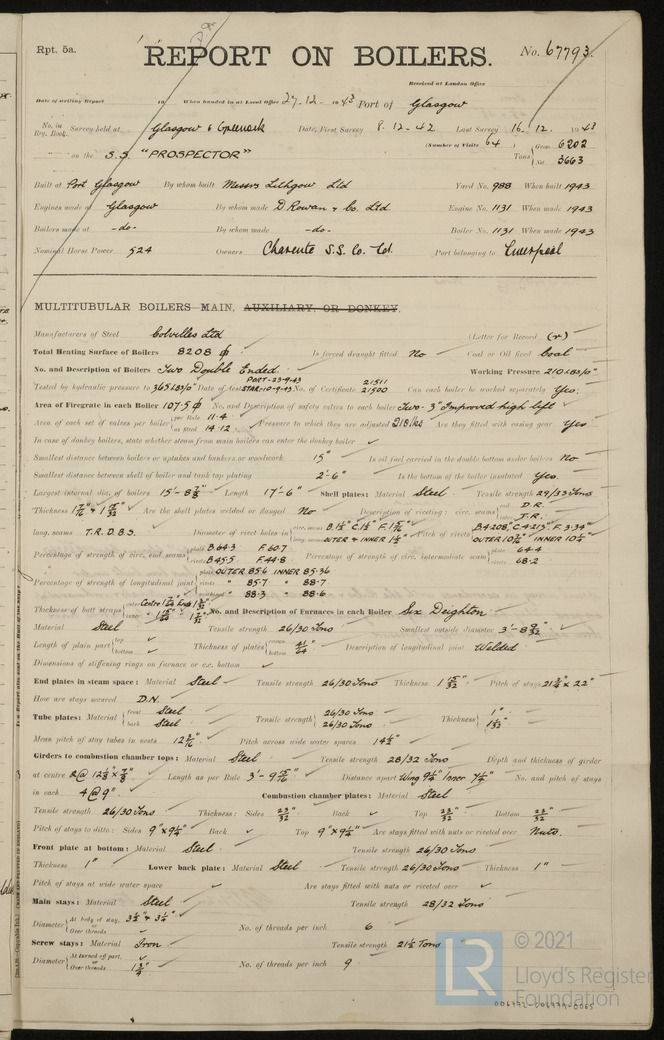 Rpt. 5a.
REPORT ON BOILERS.
No. 67793.
Received at London Office
Date of writing Report 19 When handed in at Local Office 27.12. 1943 Port of Glasgow
No. in Reg. Book. Survey held at Glasgow & Greenock Date, First Survey 8.12.42 Last Survey 16.12. 1943
(Number of Visits 64) Gross 6202
on the S.S. "PROSPECTOR" Tons Net 3663
Built at Port Glasgow By whom built Messrs Lithgow Ltd Yard No. 988 When built 1943
Engines made at Glasgow By whom made D. Rowan & Co. Ltd Engine No. 1131 When made 1943
Boilers made at -do- By whom made -do- Boiler No. 1131 When made 1943
Nominal Horse Power 524 Owners Charente S.S. Co. Ltd. Port belonging to Liverpool
MULTITUBULAR BOILERS MAIN, AUXILIARY, OR DONKEY.
Manufacturers of Steel Colvilles Ltd (Letter for Record (r)
Total Heating Surface of Boilers 8208 Is forced draught fitted No Coal or Oil fired Coal
No. and Description of Boilers Two Double Ended. Working Pressure 210 LBS/□"
PORT-23-9-43 21511
Tested by hydraulic pressure to 365 LBS/□" Date of test STAR-10-9-43 No. of Certificate 21500 Can each boiler be worked separately Yes.
Area of Firegrate in each Boiler 107.5 No. and Description of safety valves to each boiler Two 3" Improved high lift
Area of each set of valves per boiler per Rule 11.4 as fitted 14.12 Pressure to which they are adjusted 218 lbs Are they fitted with easing gear Yes
In case of donkey boilers, state whether steam from main boilers can enter the donkey boiler
Smallest distance between boilers or uptakes and bunkers or woodwork 15" Is oil fuel carried in the double bottom under boilers No
Smallest distance between shell of boiler and tank top plating 2'-6" Is the bottom of the boiler insulated Yes.
Largest internal dia. of boilers Length 17'-6" Shell plates: Material Steel Tensile strength 29/33 Tons
Thickness Are the shell plates welded or flanged No Description of riveting: circ. seams end D.R. inter. T.R.
long. seams T.R.D.B.S. Diameter of rivet holes in circ. seams long. seams OUTER & INNER Pitch of rivets
Percentage of strength of circ. end seams plate B 64.3 F. 60.7 rivets B 45.5 F. 44.8 Percentage of strength of circ. intermediate seam plate 64.4 rivets 68.2
Percentage of strength of longitudinal joint plate OUTER 85.6 INNER 85.36 rivets " 85.7 " 88.7 combined " 88.3 " 88.6
Thickness of butt straps outer inner No. and Description of Furnaces in each Boiler Six Deighton
Material Steel Tensile strength 26/30 Tons Smallest outside diameter 3'-8 9/32"
Length of plain part top bottom Thickness of plates crown bottom Description of longitudinal joint Welded
Dimensions of stiffening rings on furnace or c.c. bottom
End plates in steam space: Material Steel Tensile strength 26/30 Tons Thickness 1 15/32" Pitch of stays 21 3/4" x 22"
How are stays secured D.N.
Tube plates: Material front Steel back Steel Tensile strength 26/30 Tons 26/30 Tons Thickness 1"
Mean pitch of stay tubes in nests 12 3/16" Pitch across wide water spaces 14 1/2"
Girders to combustion chamber tops: Material Steel Tensile strength 28/32 Tons Depth and thickness of girder
at centre Length as per Rule 3'-9 Distance apart Wing 9 1/4" Inner 7 1/4" No. and pitch of stays
in each 4 @ 9" Combustion chamber plates: Material Steel
Tensile strength 26/30 Tons Thickness: Sides 23/32" Back Top 23/32" Bottom 23/32"
Pitch of stays to ditto: Sides 9" x 9 1/4" Back Top 9" x 9 1/4" Are stays fitted with nuts or riveted over Nuts.
Front plate at bottom: Material Steel Tensile strength 26/30 Tons
Thickness 1" Lower back plate: Material Steel Tensile strength 26/30 Tons Thickness 1"
Pitch of stays at wide water space Are stays fitted with nuts or riveted over
Main stays: Material Steel Tensile strength 28/32 Tons
Diameter At body of stay, or Over threads 3 1/2" & 3 1/4" No. of threads per inch 6
Screw stays: Material Iron Tensile strength 21 1/2 Tons
Diameter At turned off part, or Over threads 1 3/4" No. of threads per inch 9
© 2021
LR
Lloyd's Register
Foundation
006992-006999-0065